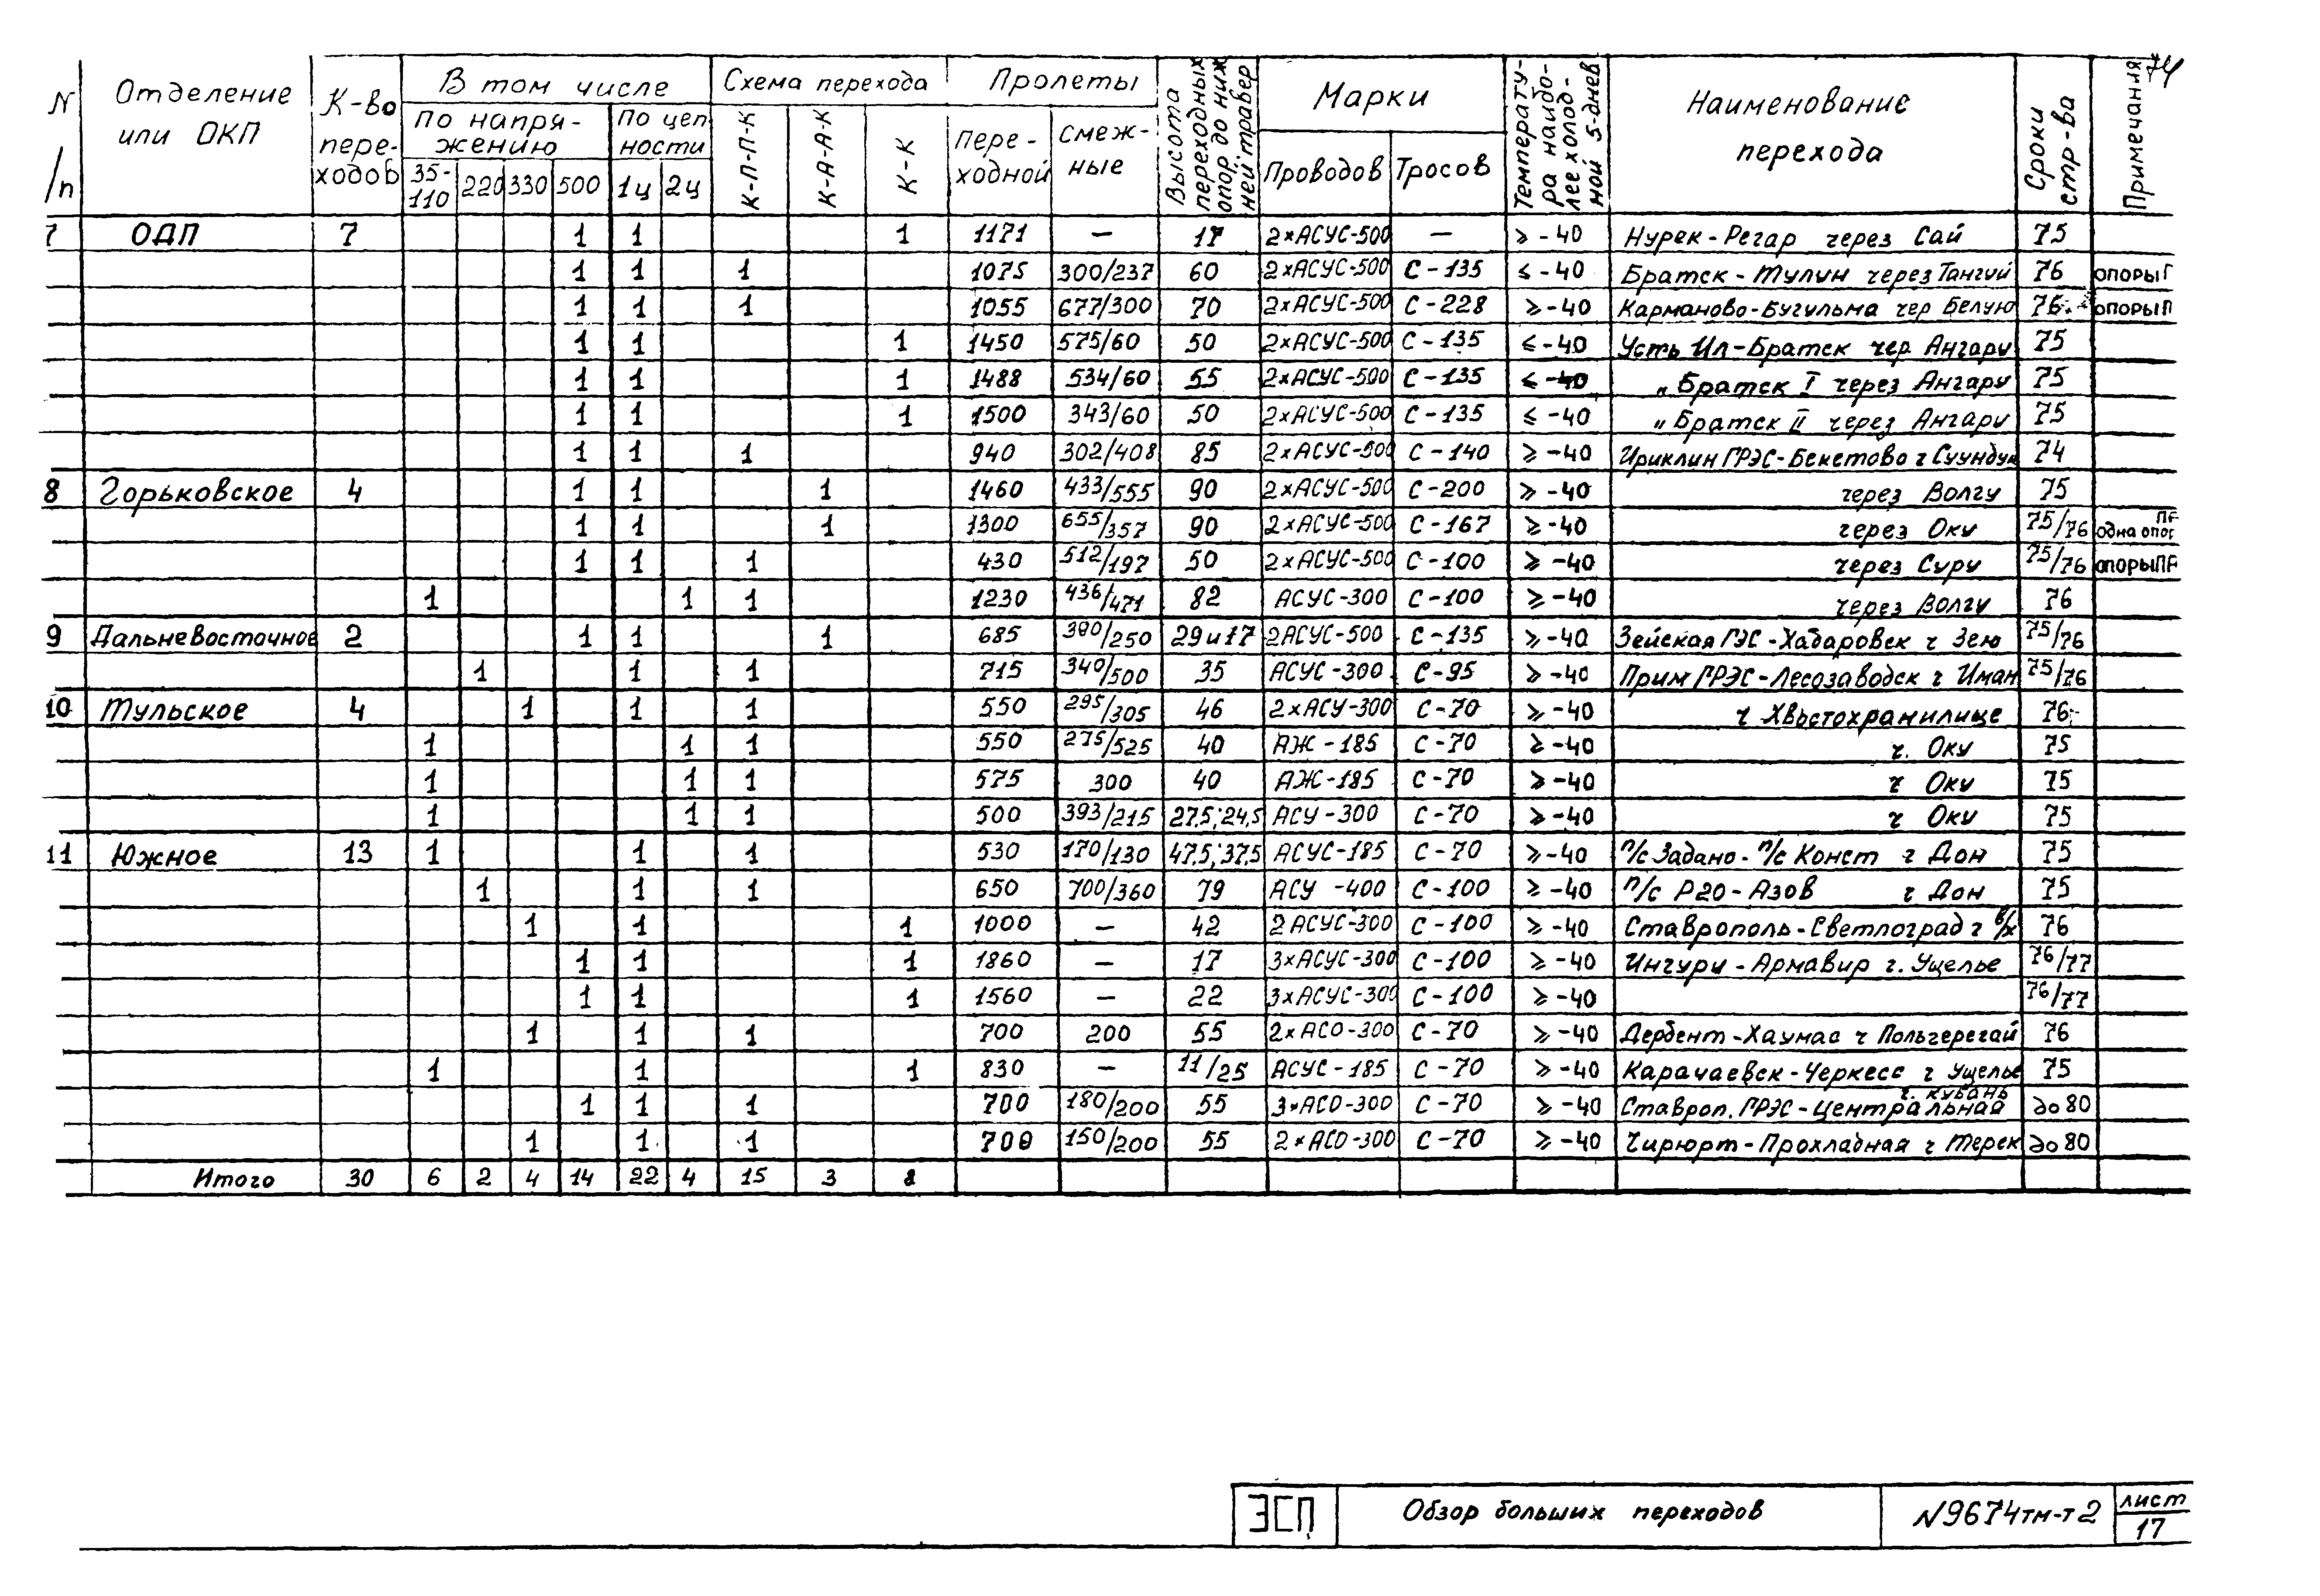 74
N п/п | Отделение или ОКП | К-во переходов | В том числе | Схема перехода | Пролеты | Высота переходных опор до нижней травер | Марки | Температура наиболее холодной 5-днев | Наименование перехода | Сроки стр-ва | Примечания
По напряжению | По цепности | К-П-П-К | К-А-А-К | К-К | Переходной | Смежные | Проводов | Тросов
35-110 | 220 | 330 | 500 | 1ц | 2ц
7 ОДП 7 1 1 1 1171 — 17 2×АСУС-500 — ⩾-40 Нурек-Регар через Сай 75
1 1 1 1075 300/237 60 2×АСУС-500 С-135 ⩽-40 Братск-Тулун через Тангуй 76 опоры
1 1 1 1055 677/300 70 2×АСУС-500 С-228 ⩾-40 Карманово-Бугульма чер Белую 76 опоры П
1 1 1 1450 575/60 50 2×АСУС-500 С-135 ⩽-40 Усть Ил-Братск чер. Ангару 75
1 1 1 1488 534/60 55 2×АСУС-500 С-135 ⩽-40 „Братск I через Ангару 75
1 1 1 1500 343/60 50 2×АСУС-500 С-135 ⩽-40 „Братск II через Ангару 75
1 1 1 940 302/408 85 2×АСУС-500 С-140 ⩾-40 Ириклин ГРЭС-Бекетово ч Суундук 74
8 Горьковское 4 1 1 1 1460 433/555 90 2×АСУС-500 С-200 ⩾-40 через Волгу 75
1 1 1 1300 655/357 90 2×АСУС-500 С-167 ⩾-40 через Оку 75/76 одна опор
1 1 1 430 512/197 50 2×АСУС-500 С-100 ⩾-40 через Суру 75/76 опоры
1 1 1 1230 436/471 82 АСУС-300 С-100 ⩾-40 через Волгу 76
9 Дальневосточное 2 1 1 1 685 /250 29 и 17 2АСУС-500 С-135 ⩾-40 Зейская ГЭС-Хабаровск ч Зею 75/76
1 1 1 715 340/500 35 АСУС-300 С-95 ⩾-40 Прим ГРЭС-Лесозаводск ч Иман 75/76
10 Тульское 4 1 1 1 550 295/305 46 2×АСУ-300 С-70 ⩾-40 ч Хвостохранилище 76
1 1 1 550 275/525 40 АЖ-185 С-70 ⩾-40 ч. Оку 75
1 1 1 575 300 40 АЖ-185 С-70 ⩾-40 ч Оку 75
1 1 1 500 393/215 27,5; 24,5 АСУ-300 С-70 ⩾-40 ч Оку 75
11 Южное 13 1 1 1 530 170/130 47,5; 37,5 АСУС-185 С-70 ⩾-40 п/с Задано-п/с Конст ч Дон 75
1 1 1 650 700/360 79 АСУ-400 С-100 ⩾-40 п/с Р20-Азов ч Дон 75
1 1 1 1000 — 42 2 АСУС-300 С-100 ⩾-40 Ставрополь-Светлоград ч в/х 76
1 1 1 1860 — 17 3×АСУС-300 С-100 ⩾-40 Ингури-Армавир ч. Ущелье 76/77
1 1 1 1560 — 22 3×АСУС-300 С-100 ⩾-40 76/77
1 1 1 700 200 55 2×АСО-300 С-70 ⩾-40 Дербент-Хачмас ч 76
1 1 1 830 — 11/25 АСУС-185 С-70 ⩾-40 Карачаевск-Черкесс ч Ущелье 75
1 1 1 700 180/200 55 3×АСО-300 С-70 ⩾-40 Ставроп. ГРЭС-Центральная ч. Кубань до 80
1 1 1 700 150/200 55 2×АСО-300 С-70 ⩾-40 Чирюрт-Прохладная ч Терек до 80
Итого 30 6 2 4 14 22 4 15 3
ЭСП | Обзор больших переходов | N9674тм-т2 | лист 17